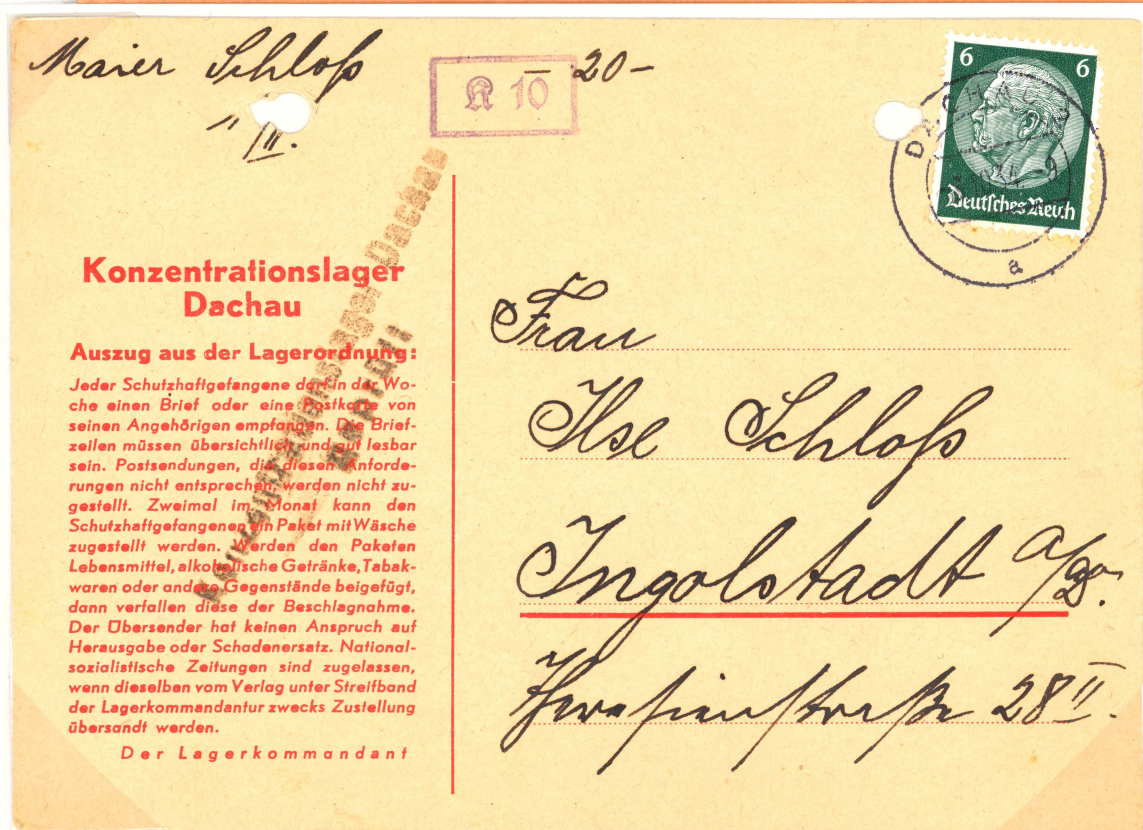 Maier Schloß
11/II.
K 10
20-
6 6
Deutsches Reich
DACHAU
a
Konzentrationslager Dachau
Geprüft
Konzentrationslager
Dachau
Auszug aus der Lagerordnung:
Jeder Schutzhaftgefangene darf in der Wo-
che einen Brief oder eine Postkarte von
seinen Angehörigen empfangen. Die Brief-
zeilen müssen übersichtlich und gut lesbar
sein. Postsendungen, die diesen Anforde-
rungen nicht entsprechen, werden nicht zu-
gestellt. Zweimal im Monat kann den
Schutzhaftgefangenen ein Paket mit Wäsche
zugestellt werden. Werden den Paketen
Lebensmittel, alkoholische Getränke, Tabak-
waren oder andere Gegenstände beigefügt,
dann verfallen diese der Beschlagnahme.
Der Übersender hat keinen Anspruch auf
Herausgabe oder Schadenersatz. National-
sozialistische Zeitungen sind zugelassen,
wenn dieselben vom Verlag unter Streifband
der Lagerkommandantur zwecks Zustellung
übersandt werden.
Der Lagerkommandant
Frau
Ilse Schloß
Ingolstadt a/Do.
Theresienstraße 28 II.